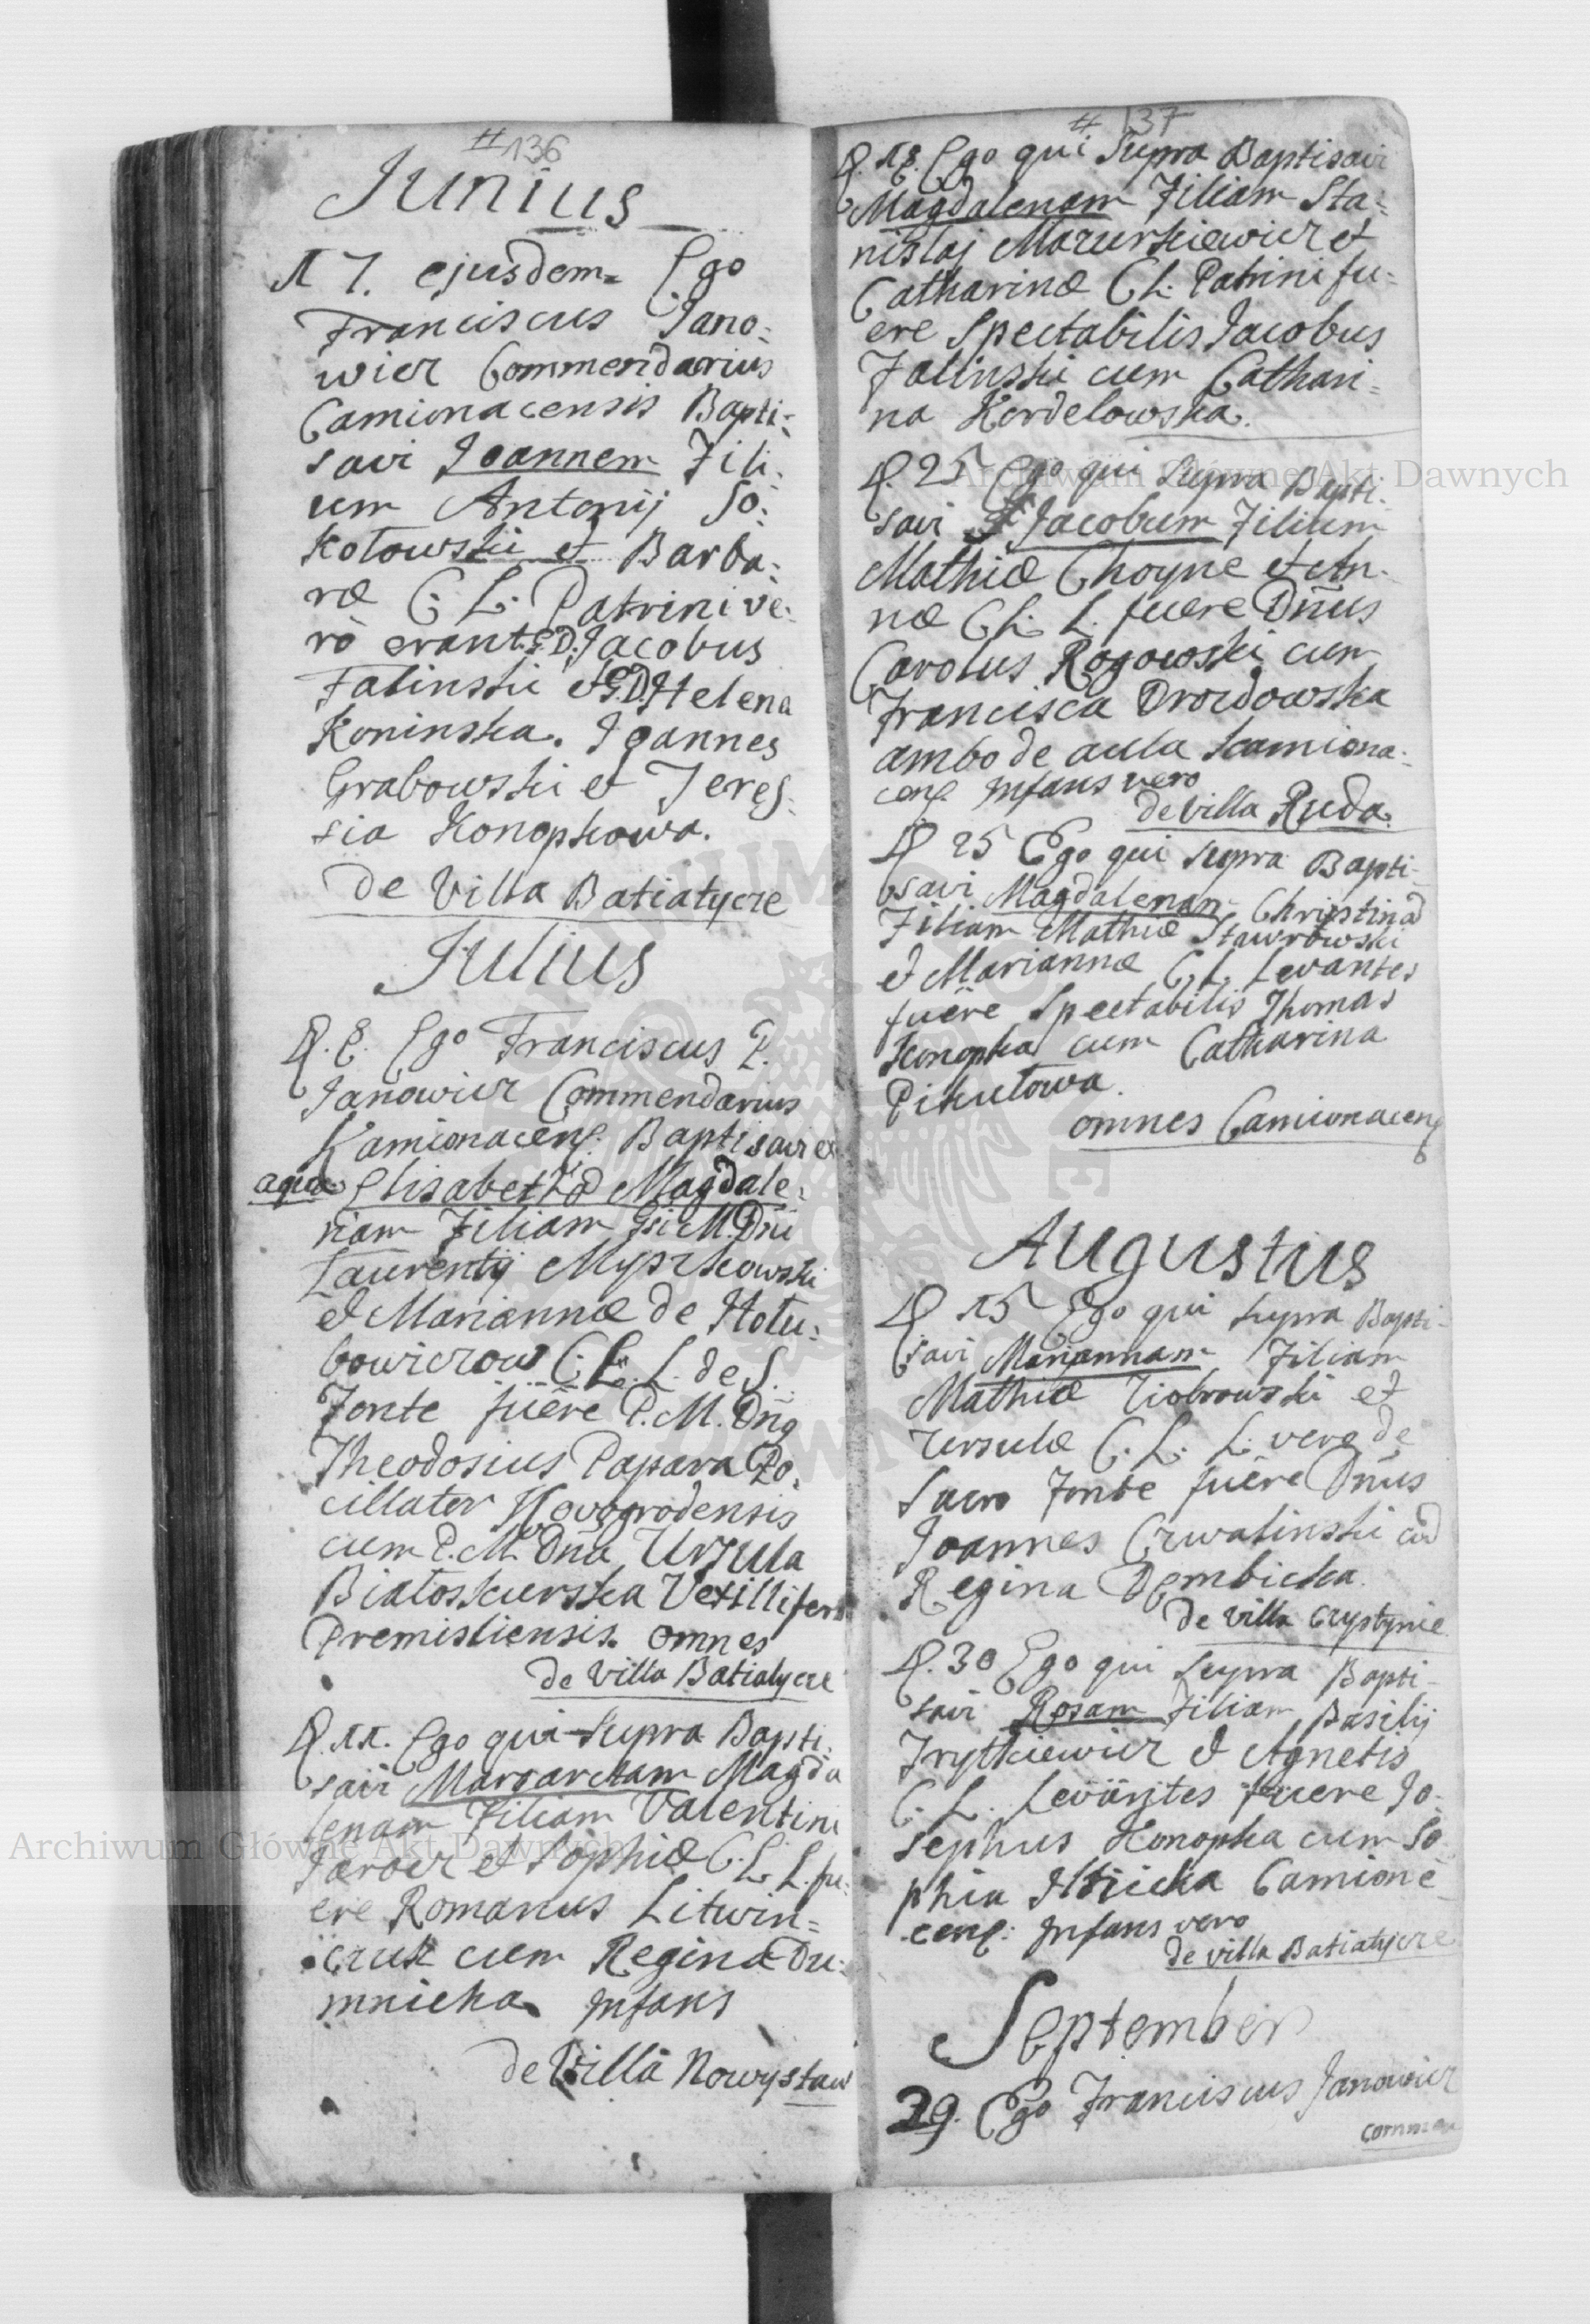 #136
Junius
17. ejusdem. Ego
Franciscus Jano:
wicz Commendarius
Camionacensis Bapti:
savi Joannem Fili:
um Antonij So:
kołowski et Barba:
ræ C. L. Patrini ve:
rò erant. G.D. Jacobus
Falinski et G.D. Helena
Koninska. Joannes
Grabowski et Teres:
sia Konopkowa.
De Villa Batiatycze
Julius
D. 8. Ego Franciscus P.
Janowicz Commendarius
Kamionacens. Baptisavi ex
aqua Elisabetha Magdale:
nam Filiam Gsi M. Dni
Laurentij Myszkowski
et Mariannæ de Hołu:
bowiczow C. L. L. de S.
Fonte fuêre P. M. Dng
Theodosius Papara Po:
cillator Novogrodensis
cum P. M. Dna Ursula
Białoskurska Vexillifera
Premisliensis. omnes
de Villa Batiatycze
D. 11. Ego qui supra Bapti:
savi Margaretam Magda
lenam Filiam Valentini
Jarosz et Sophiæ C. L. L. fu:
ere Romanus Litwin=
czuk cum Regina Du:
mnicka infans
de Villa Nowystaw
# 137
D. 18. Ego qui Supra Baptisavi
Magdalenam Filiam Sta=
nislai Mazurkiewicz et
Catharinæ C. L. Patrini fu=
ere Spectabilis Jacobus
Falinski cum Cathari=
na Kordelowska.
D. 25 Ego qui Supra Bapti:
savi Jacobum Filium
Mathiæ Choyne et An:
næ C. L. L. fuere Dñus
Carolus Rogowski cum
Francisca Drozdowska
ambo de aula Kamiona:
cens. Infans vero
de villa Ruda.
D 25 Ego qui supra Bapti:
savi Magdalenam Christinã
Filiam Mathiæ Stawrowski
et Mariannæ C. L. Levantes
fuêre Spectabilis Thomas
Konopka cum Catharina
Pikułowa.
omnes Camionacens
Augustus
D 15 Ego qui supra Bapti:
savi Mariannam Filiam
Mathiæ Ziobrowski et
Ursulæ C. L. L. vero de
Sacro Fonte fuêre Dñus
Joannes Czwalinski cũ
Regina Dembicka.
de villa Czystynie
D. 30 Ego qui supra Bapti:
savi Rosam Filiam Basilij
Frytkiewicz et Agnetis
C. L. Levantes fuere Jo:
sephus Konopka cum So:
phia Camione
cens: Infans vero
de villa Batiatycze
September
29. Ego Franciscus Janowicz
Commen
Archiwum Główne Akt Dawnych
Archiwum Główne Akt Dawnych